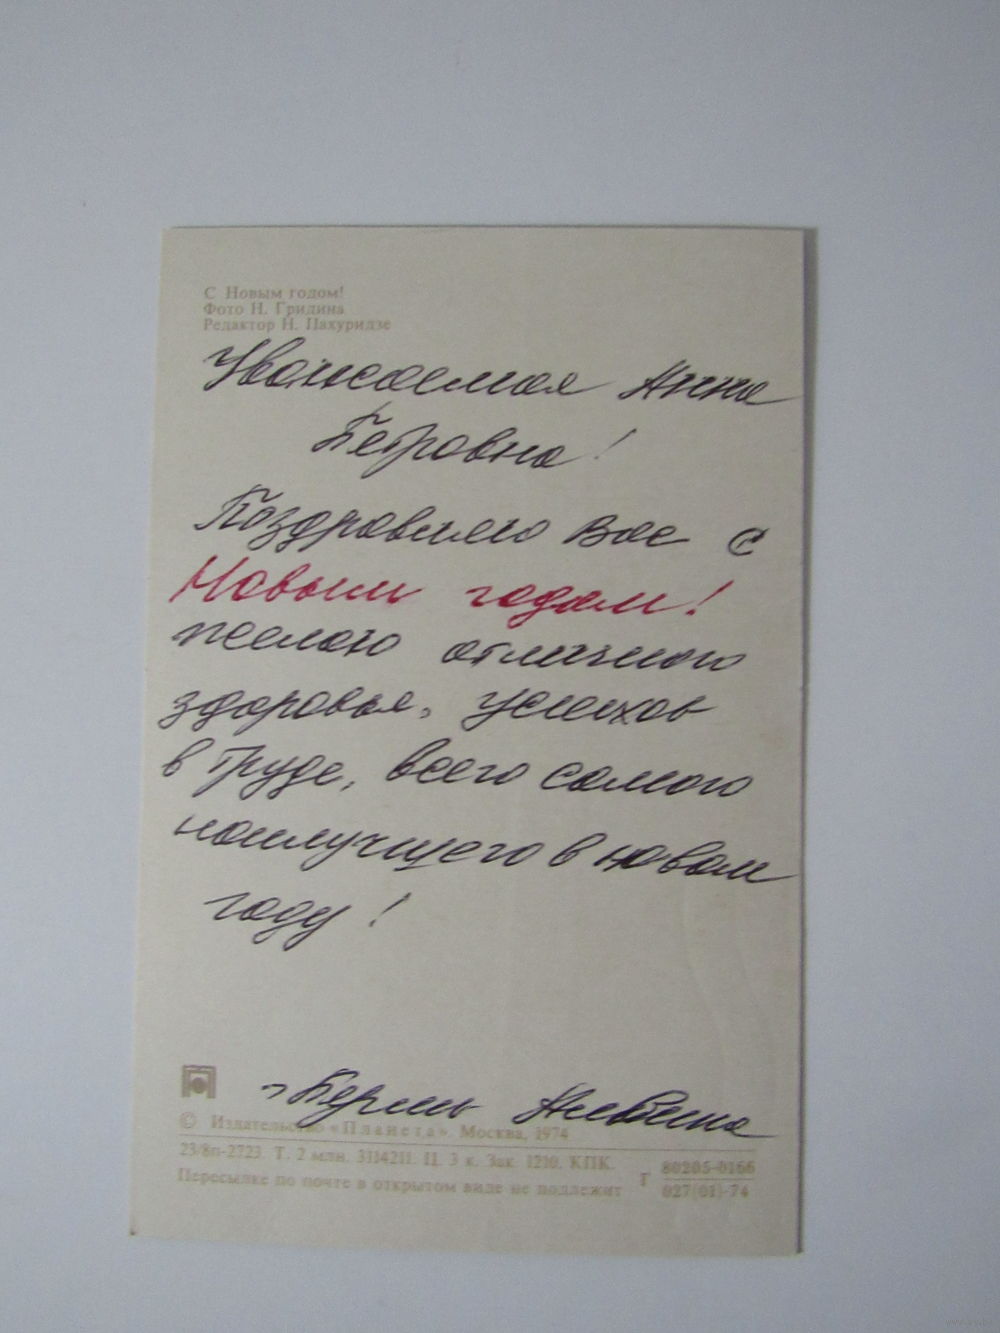 С Новым годом!
Фото Н. Гридина
Редактор Н. Пахуридзе
Уважаемая Анна
Петровна!
Поздравляю Вас с
Новым годом!
желаю отличного
здоровья, успехов
в труде, всего самого
наилучшего в новом
году!
© Издательство «Планета». Москва, 1974
23/8п-2723. Т. 2 млн. 3114211. Ц. 3 к. Зак. 1210. КПК.
Пересылке по почте в открытом виде не подлежит
Г 80205-0166
027(01)-74